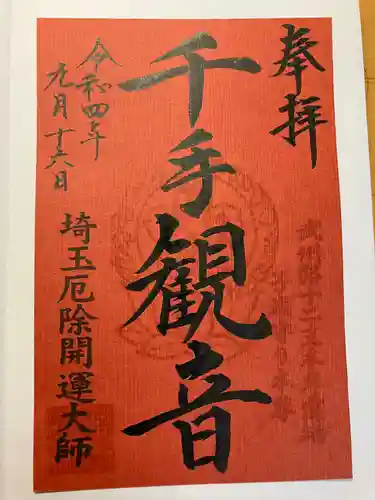 奉拝
千手観音
令和四年
九月十六日
埼玉厄除開運大師